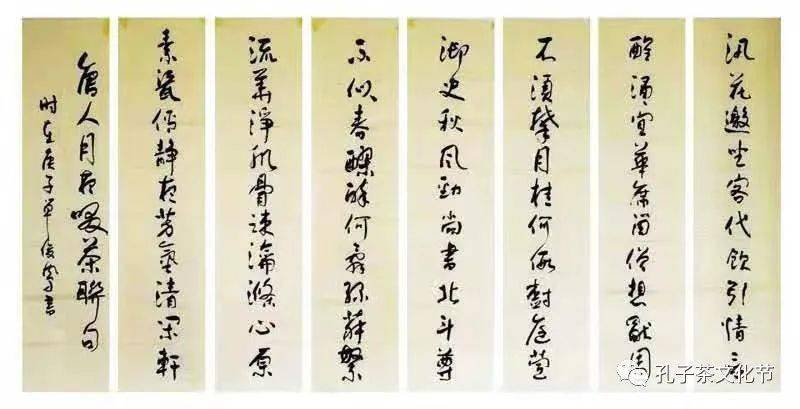 汎花邀坐客代飲引情言
醒酒宜華席留僧想獸園
不須攀月桂何假樹庭萱
御史秋风勁尚書北斗尊
不似春醪醉何辭繁
流華淨肌骨疎瀹滌心原
素瓷傳靜夜芳氣清閑軒
唐人月夜啜茶聯句
时在庚子單俊書
孔子茶文化节